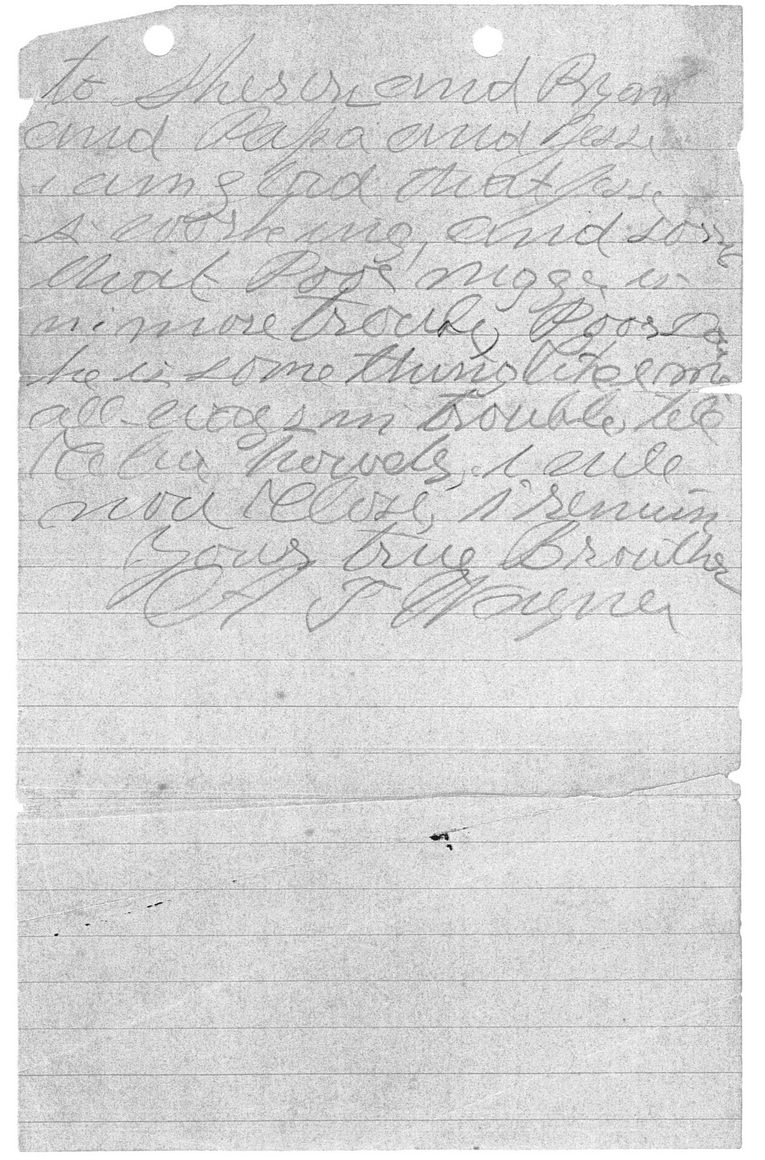 to and Bryan
and Papa and Jesse
i am glad that Jesse
is working, and sory
that Poor nigga is
in more trouble, Poor
he is some thing like me
all ways in trouble, tell
howdy, i will
now Close, i remain
Your true Brouther
A T Wagner